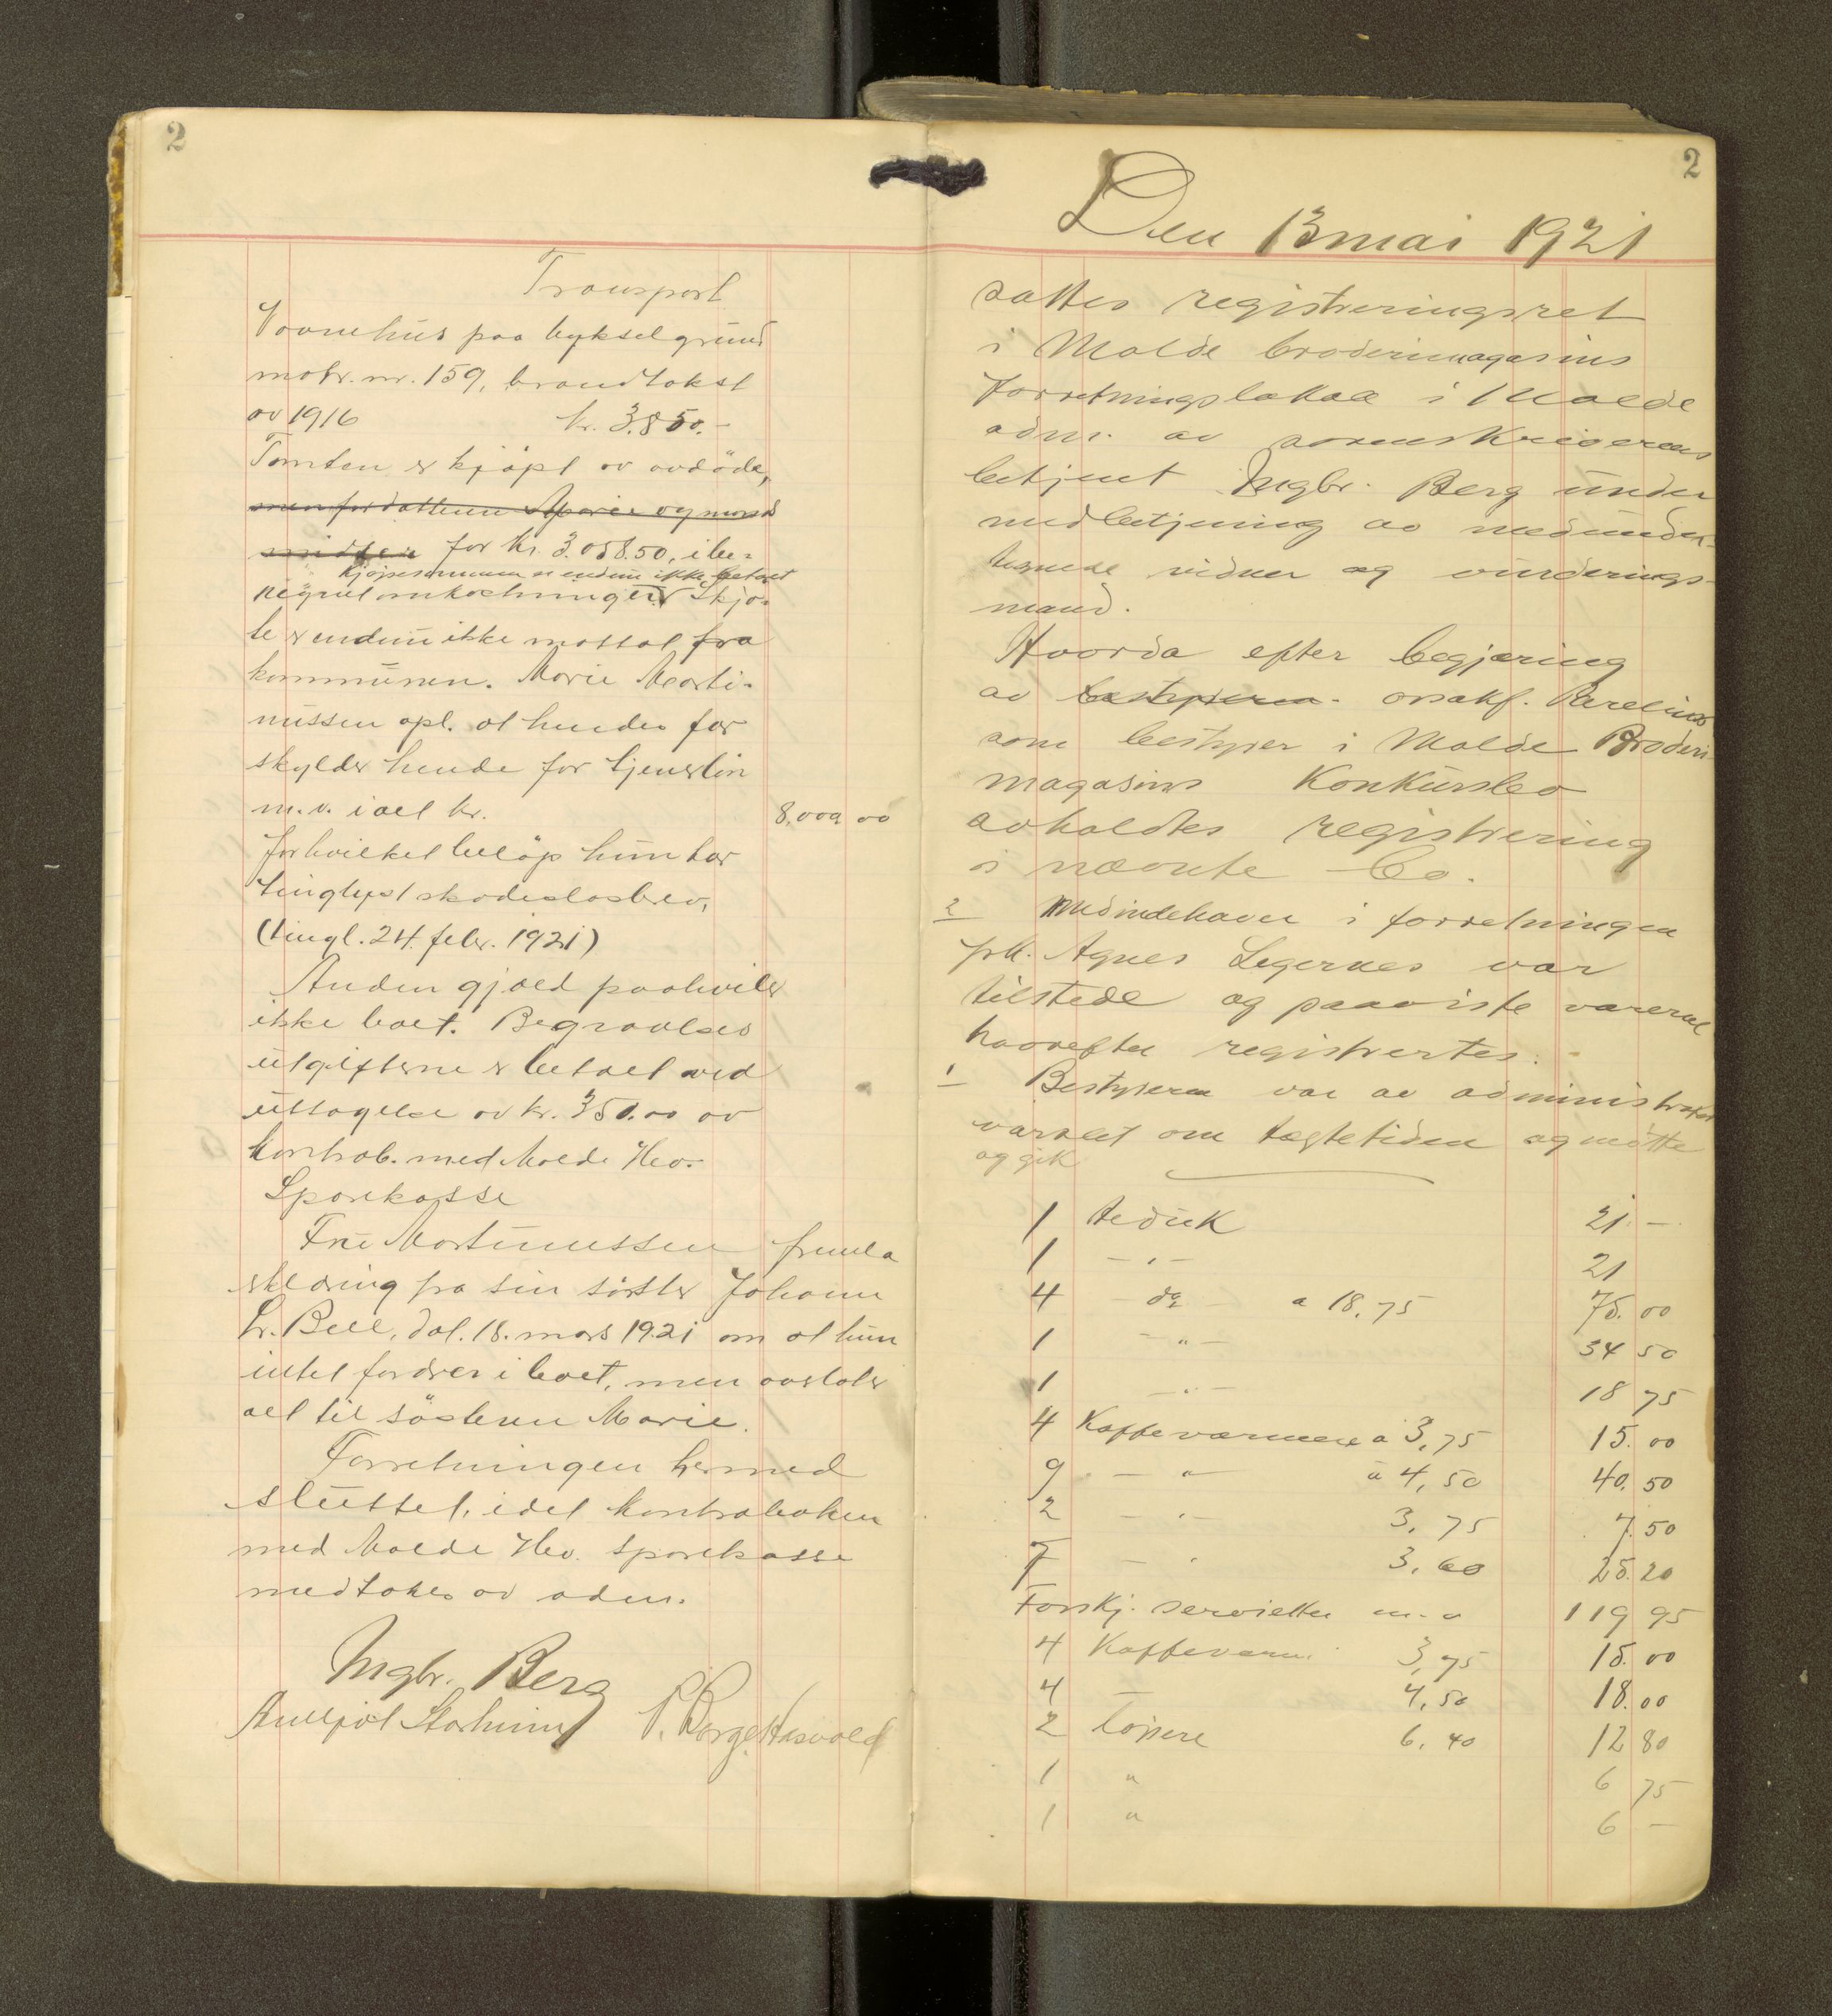 2
Transport
Vaanehus paa bykselgrund
matr. nr. 159, brandtakst
av 1916 kr. 3.850.-
Tomten er kjöpt av avdöde,
men for datteren Maries vymords
midler for kr. 3.058.50, ibe-
kjöpesummen er endnu ikke betalt
regnet omkostninger. Skjö-
te er endnu ikke mottat fra
kommunen. Marie Marti-
nussen opl. at hendes far
skylder hende for tjenerlön
m.v. i alt kr. 8.000 00
for hvilket belöp hun har
tinglyst skadeslösbrev,
(tingl. 24. febr. 1921)
Anden gjæld paahviler
ikke boet. Begravelses
utgifterne er betalt ved
uttagelse av kr. 350.00 av
kontrab. med Molde Hev.
Sparekasse
Frk. Martinussen freml.
erklæring fra sin söster Johanna
L. Bell, dat. 18. mars 1921 om at hun
intet fordrer i boet, men overlater
alt til sösteren Marie.
Forretningen hermed
sluttet, idet kontraboken
med Molde Hev. Sparekasse
medtokes av adm.
Ingbr. Berg
P. Borge Hasvold
2
Den 13 mai 1921
sattes registreringsret
i Molde broderimagasins
forretningslokale i Molde
adm. av sorenskriverens
betjent Ingbr. Berg under
medbetjening av medunder-
tegnede vidner og vurderings-
mænd.
Hvorda efter begjæring
av bestyreren. o.r.sakf. Parelius
som bestyrer i Molde Broderi
magasins Konkursbo
avholdtes registrering
i nævnte bo.
2 Medindehaver i forretningen
frk. Agnes Legernes var
tilstede og paaviste varerne
hvorefter registrertes:
1 Bestyreren var av administrator
varslet om tægtetiden og mötte
og gik
1 teduk 21. -
1 - " - 21
4 - do - a 18.75 75.00
1 - " - 34 50
1 - " - 18 75
4 Kaffevarmere a 3,75 15.00
9 - " - a 4,50 40.50
2 - " - 3.75 7.50
7 - " 3.60 25.20
Forskj. servietter m.v 119 95
4 Kaffevarm. 3,75 15.00
4 - 4,50 18.00
2 Löpere 6.40 12 80
1 " 6 75
1 " 6 -